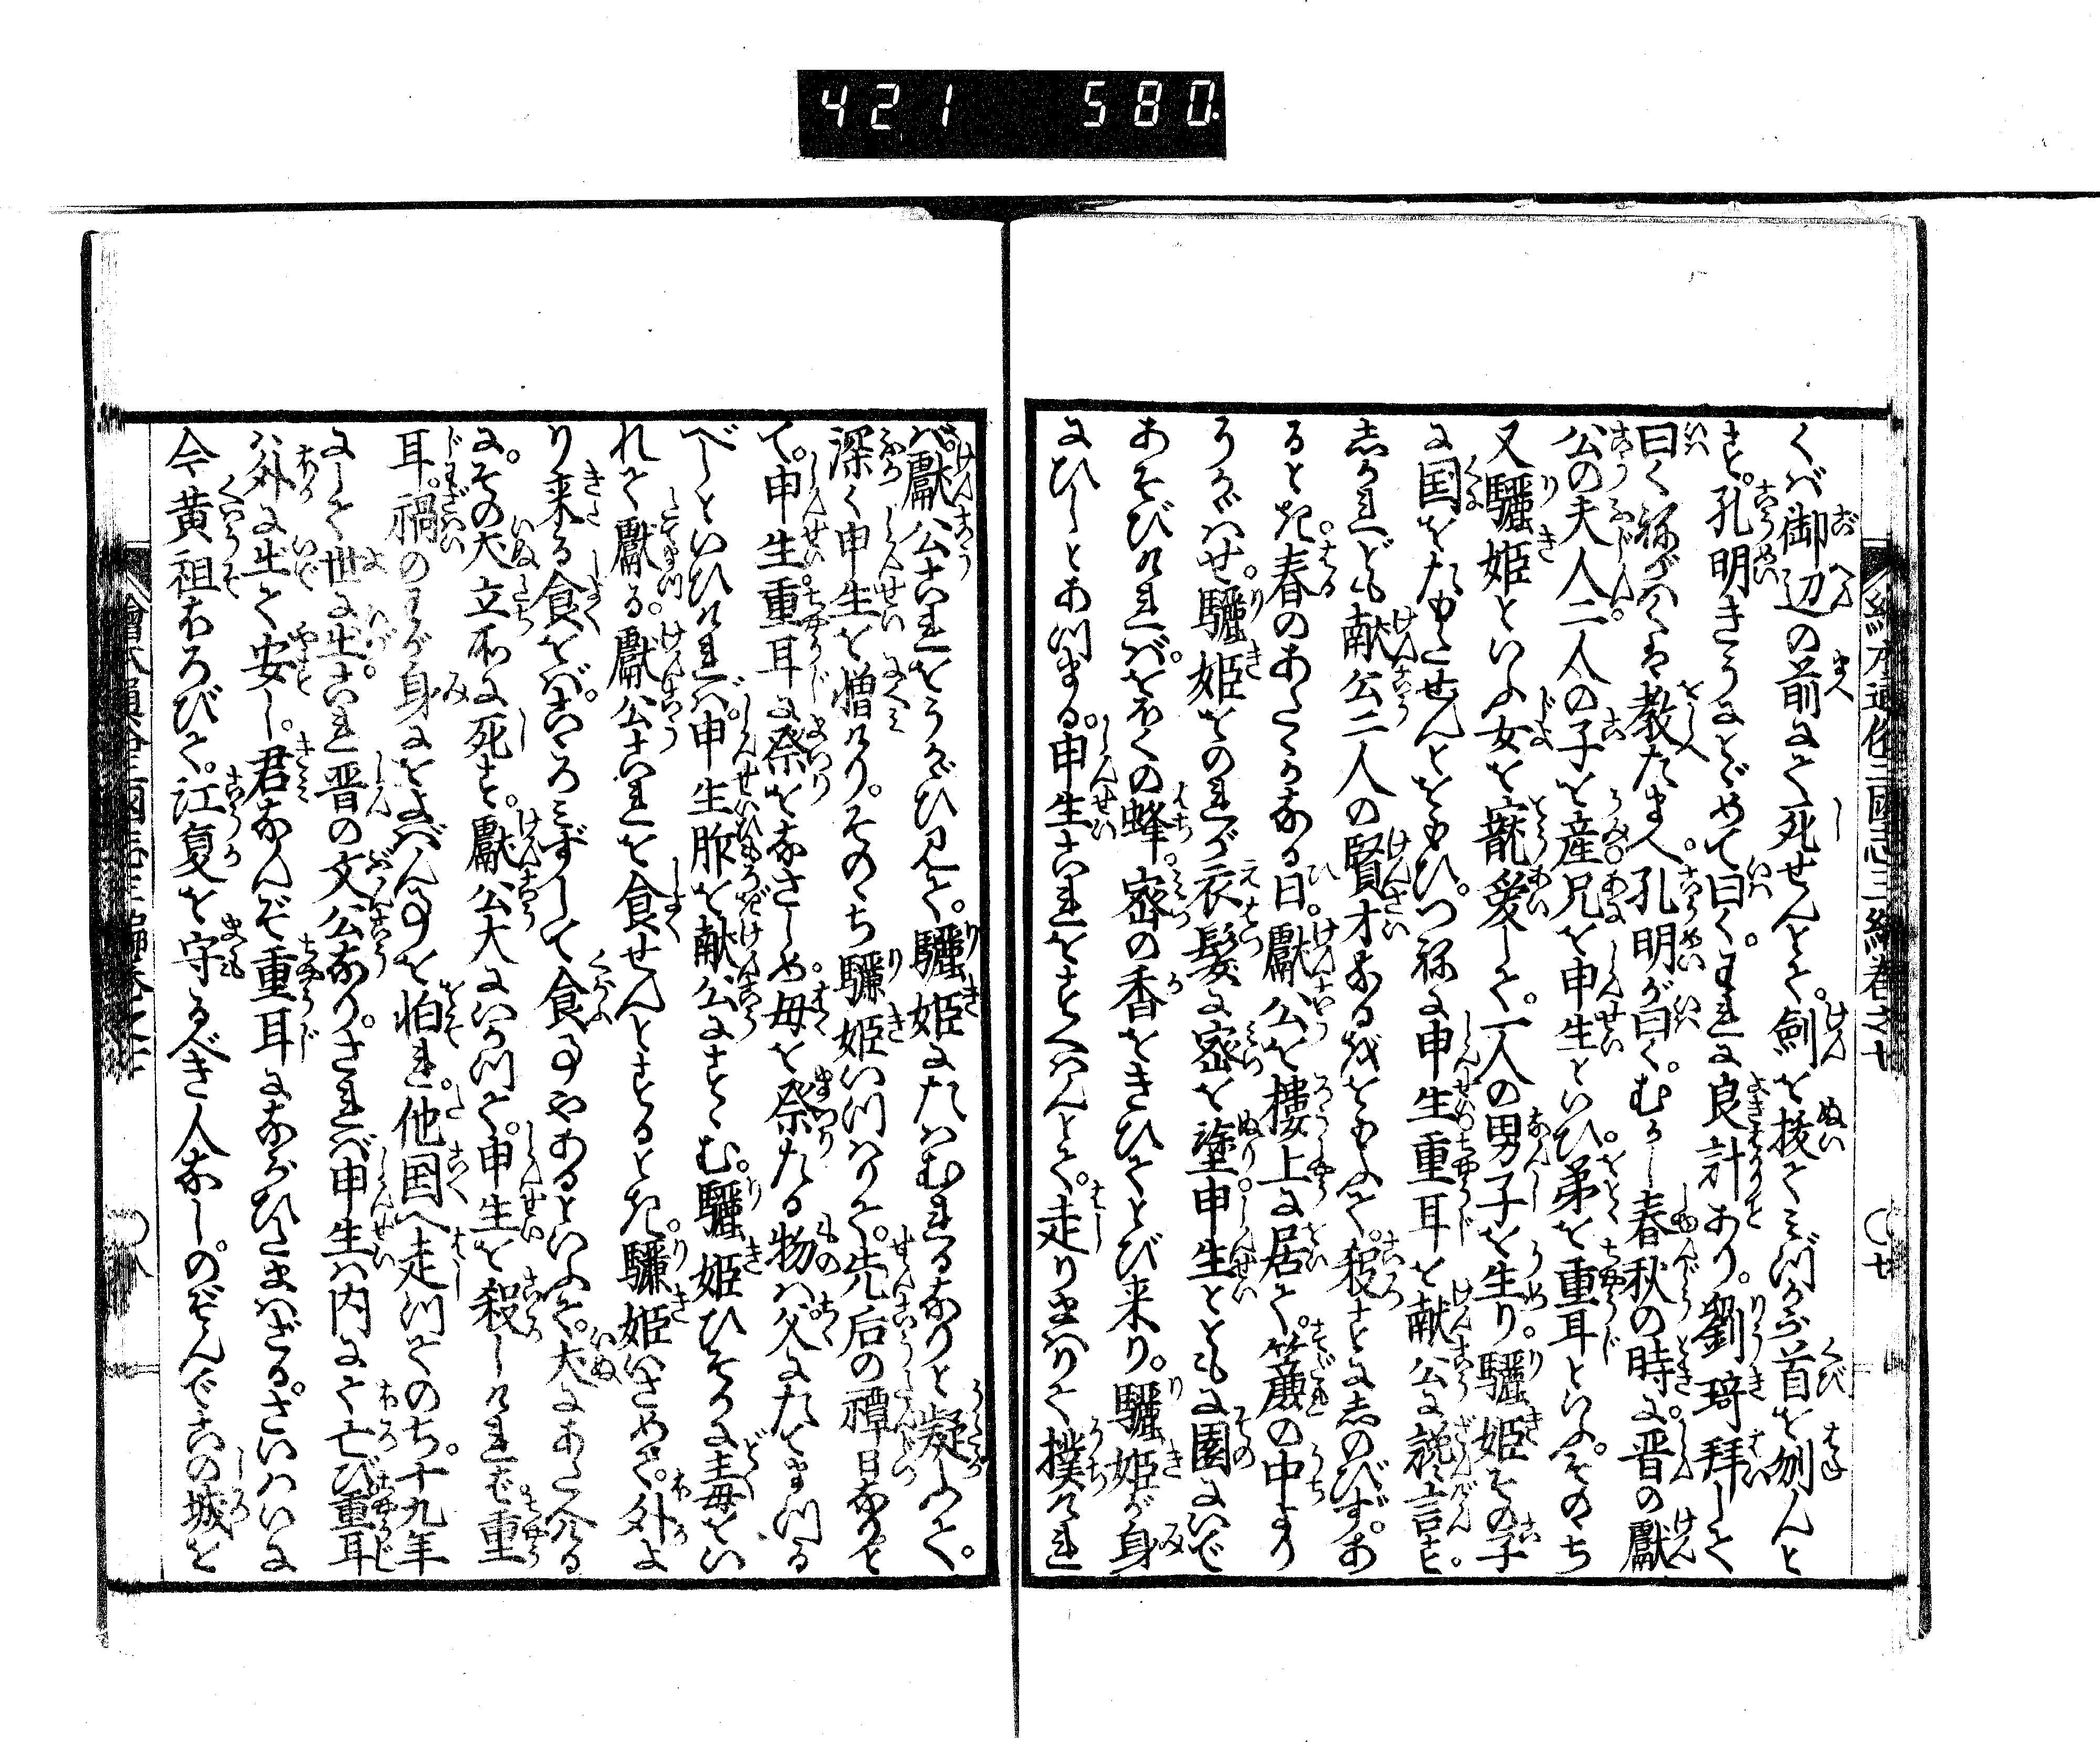 421 580
くバ御辺の前にて死せんとて劔を抜てミづから首を刎んと
す。孔明きうにとゞめて曰く。われに良計あり。劉琦拝して
曰く。ねがハくは教たまへ。孔明が曰く。むかし春秋の時に晋の獻
公の夫人二人の子を産。兄を申生といひ。弟を重耳といふ。そのち
又驪姫といふ女を寵愛して。一人の男子を生り。驪姫その子
に国をたもたせんとおもひ。つねに申生重耳を献公に讒言す。
志かれども献公二人の賢才なるをおもふて。殺すに志のびず。あ
るとき。春のあたゝかなる日。獻公を樓上に居て。簾の中より
うかゞハせ。驪姫をのれが衣髪に密を塗。申生とともに園にいで
あそびければ。をほくの蜂。密の香をきひてとび来り。驪姫が身
にひしとあつまる。申生これをすくハんとて。走りまハりて撲ければ
バ。獻公これをうかゞひ見て。驪姫にたハむれるなりと疑ふて。
深く申生を憎けり。そのゝち驪姫いつハりて。先后の禫日なりと
て。申生重耳に祭をなさしめ。母を祭たる物ハ。父にたてまつる
べしといひければ。申生胙を献公にすゝむ。驪姫ひそかに毒をい
れて獻る。獻公これを食せんとするとき。驪姫いさめて。外よ
り来る食をバ。こゝろミずして食ふ事やあるといふて。犬にあたへる
に。その犬立所に死す。獻公大にいかつて。申生を殺しければ。重
耳。禍のわが身にをよばん事を怕れ。他国へ走つてのち。十九年
にして世に出。これ晋の文公なり。されバ申生ハ内にて亡び。重耳
ハ外に出て安し。君なんぞ重耳にならひたまハざる。さいハいに
今黄祖ほろびて。江夏を守るべき人なし。のぞんでこの城を